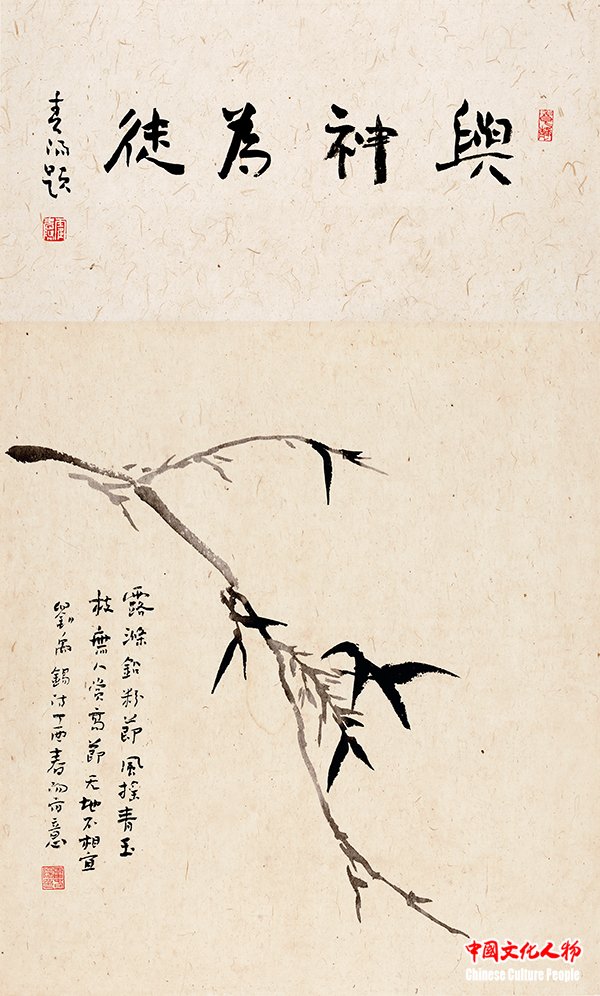 與神為徒
題
露滌鉛粉節風搖青玉
枝無人賞高節无地不相宜
劉禹錫詩丁酉春
中國文化人物
Chinese Culture People